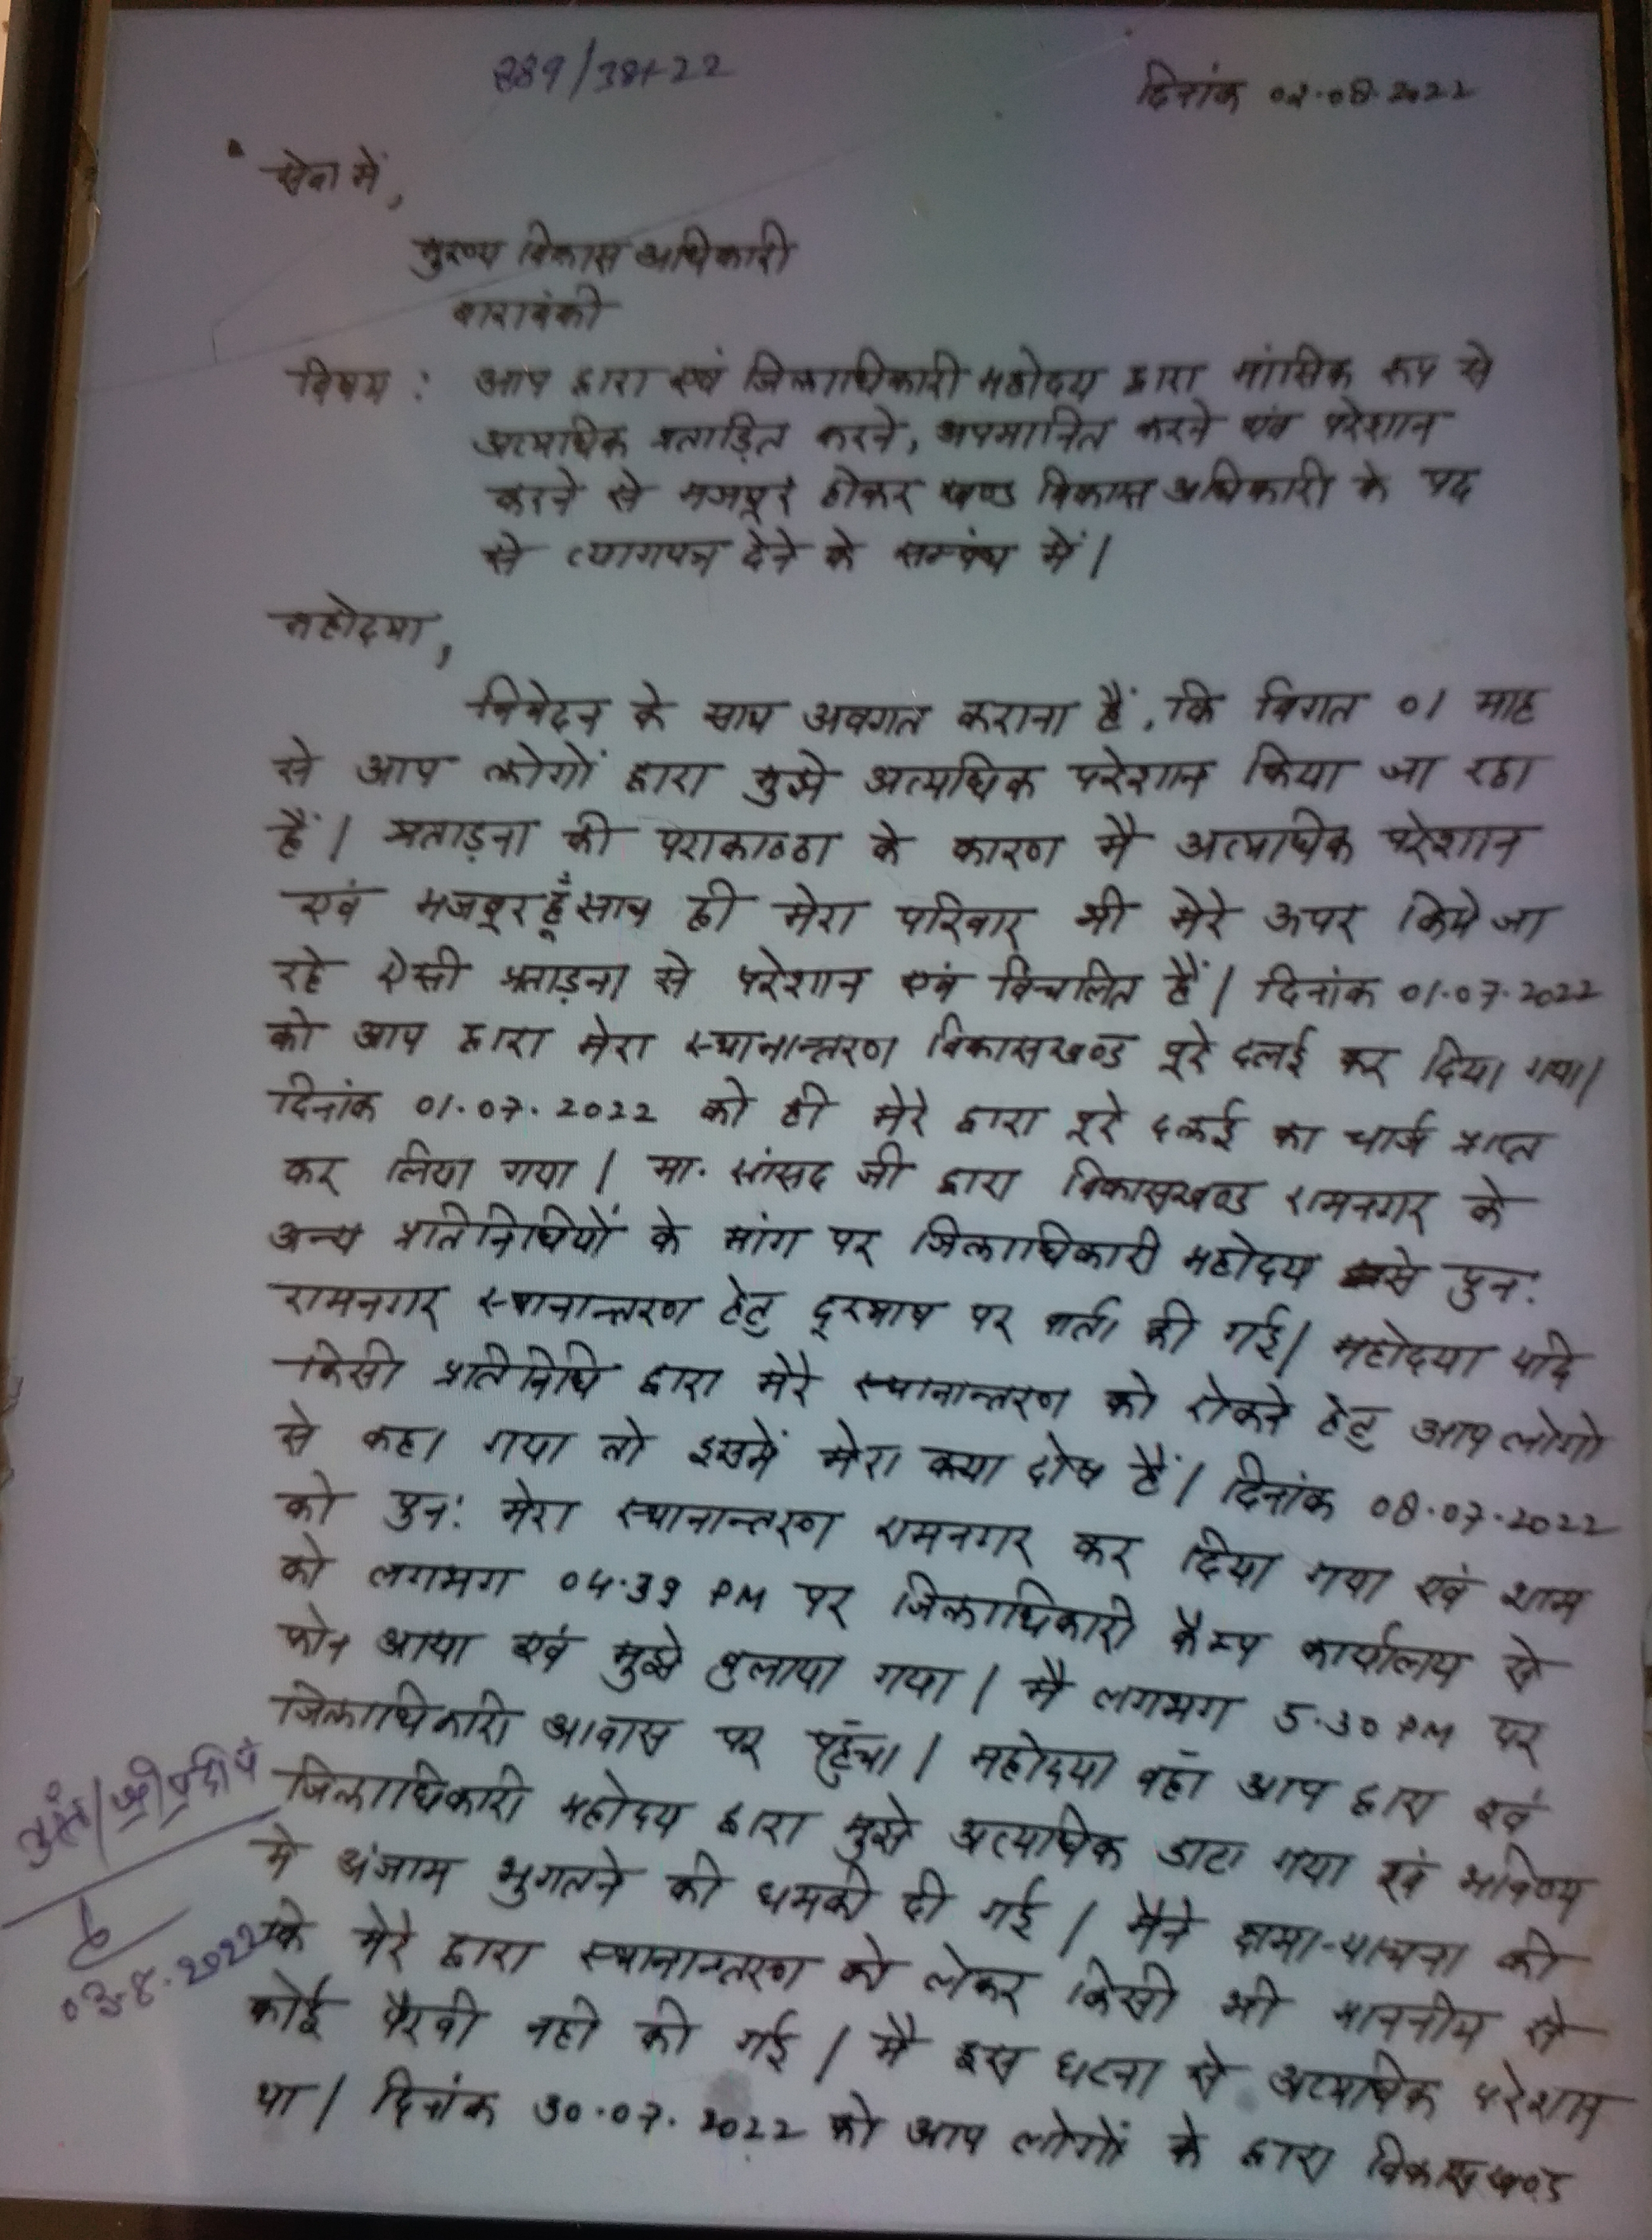 889/38+22
दिनांक 02.08.2022
सेवा में,
मुख्य विकास अधिकारी
बाराबंकी
विषय : आप द्वारा एवं जिलाधिकारी महोदय द्वारा मांसिक रूप से
अत्यधिक प्रताड़ित करने, अपमानित करने एवं परेशान
करने से मजबूर होकर खण्ड विकास अधिकारी के पद
से त्यागपत्र देने के सम्बंध में।
महोदया,
निवेदन के साथ अवगत कराना हैं, कि विगत 01 माह
से आप लोगों द्वारा मुझे अत्यधिक परेशान किया जा रहा
हैं। प्रताड़ना की पराकाठठा के कारण मै अत्याधिक परेशान
एवं मजबूर हूँ साथ ही मेरा परिवार भी मेरे ऊपर किये जा
रहे ऐसी प्रताड़ना से परेशान एवं विचलित हैं। दिनांक 01.07.2022
को आप द्वारा मेरा स्थानान्तरण विकासखण्ड पूरे दलई कर दिया गया।
दिनांक 01.07.2022 को ही मेरे द्वारा पूरे दलई का चार्ज प्राप्त
कर लिया गया। मा. सांसद जी द्वारा विकासखण्ड रामनगर के
अन्य प्रतिनिधियों के मांग पर जिलाधिकारी महोदय से पुन:
रामनगर स्थानान्तरण हेतु दूरभाष पर वार्ता की गई। महोदया यदि
किसी प्रतिनिधि द्वारा मेरे स्थानान्तरण को रोकने हेतु आप लोगो
से कहा गया तो इसमें मेरा क्या दोष हैं। दिनांक 08.07.2022
को पुन: मेरा स्थानान्तरण रामनगर कर दिया गया एवं शाम
को लगभग 04.39 PM पर जिलाधिकारी कैम्प कार्यालय से
फोन आया एवं मुझे बुलाया गया। मै लगभग 5.30 PM पर
जिलाधिकारी आवास पर पहुँचा। महोदया वहाँ आप द्वारा एवं
जिलाधिकारी महोदय द्वारा मुझे अत्याधिक डाटा गया एवं भविष्य
मे अंजाम भुगतने की धमकी दी गई। मैने क्षमा-याचना की
के मेरे द्वारा स्थानान्तरण को लेकर किसी भी माननीय से
कोई पैरवी नही की गई। मै इस घटना से अत्याधिक परेशान
था। दिनांक 30.07.2022 को आप लोगों के द्वारा विकासखण्ड
03.8.2022